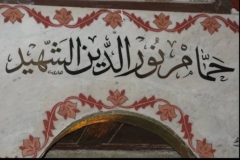 حمّام نُور الدّين الشّهيد